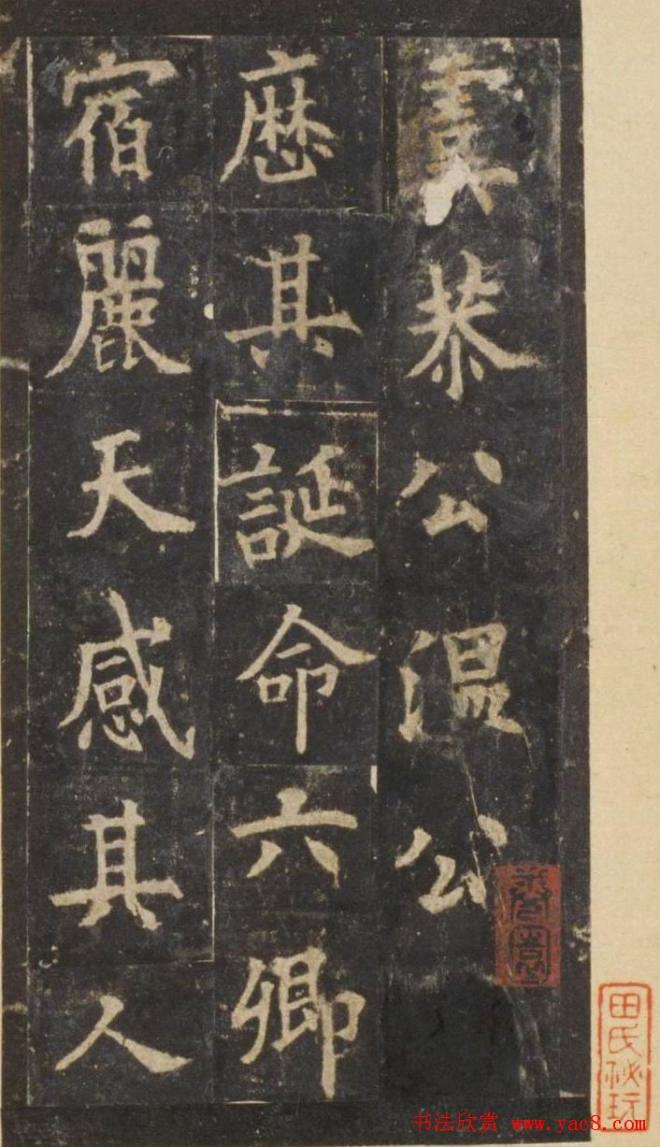 虞恭公温公
歴其誕命六卿
宿麗天感其人
田氏祕玩
书法欣赏 www.yac8.com